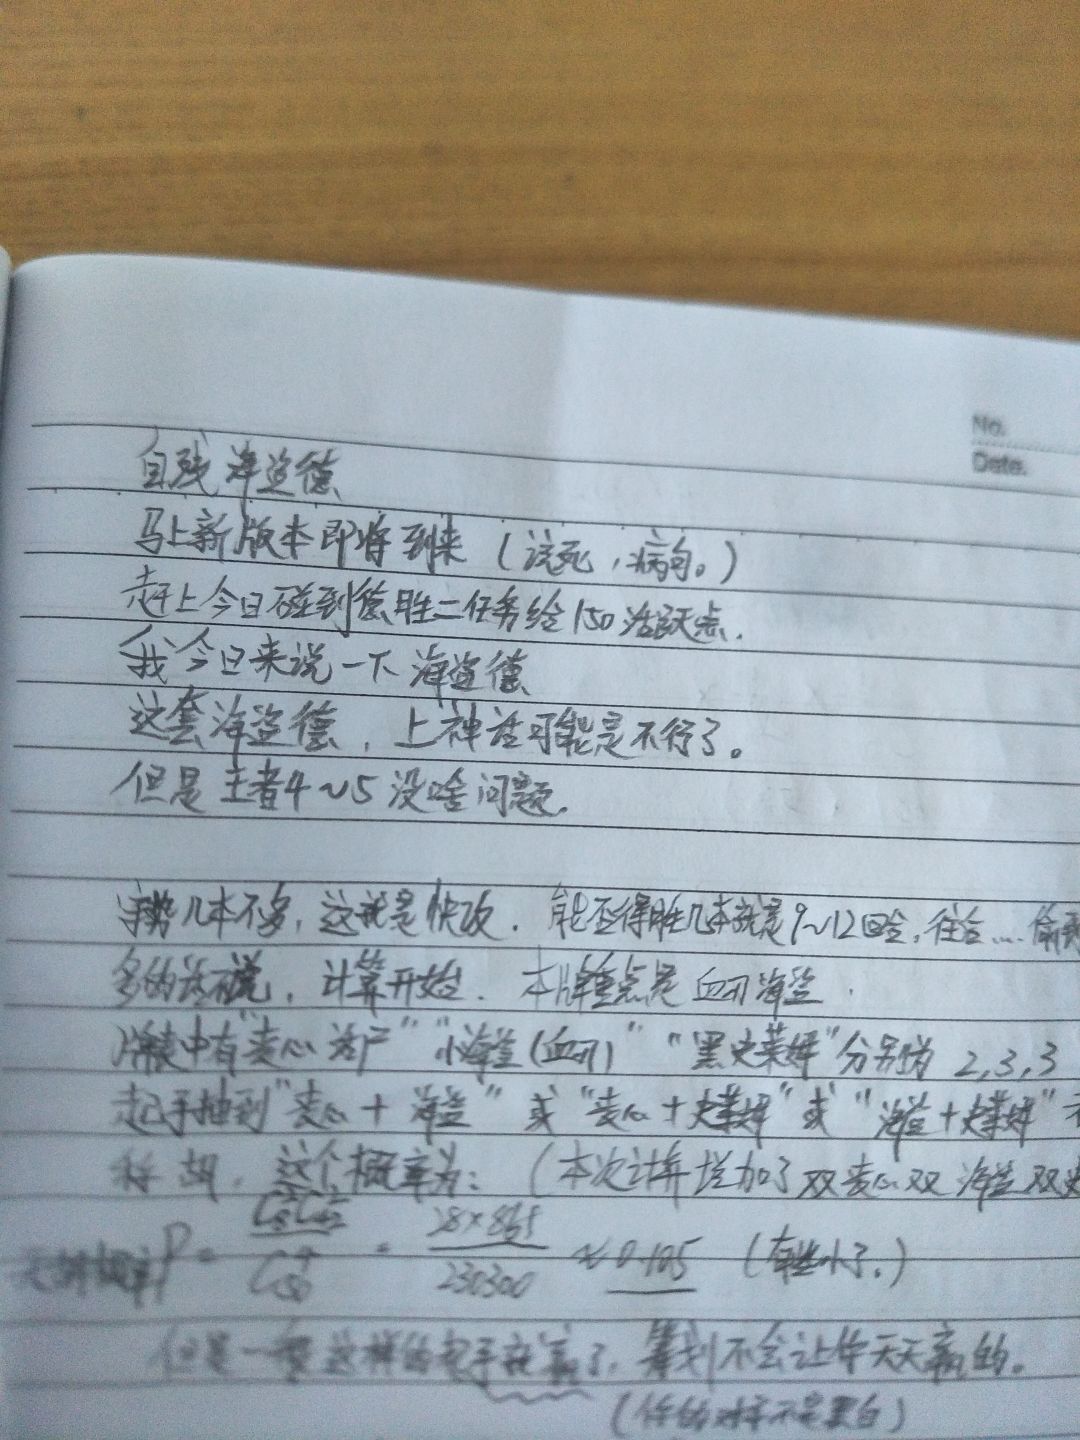 No.
Date.
自残海盗德
马上新版本即将到来（该死，病句。）
赶上今日碰到德胜二任务给150活跃点.
我今日来说一下海盗德
这套海盗德，上神话可能是不行了。
但是王者4~5没啥问题.
几本不多，这就是快攻. 能否得胜几本就是9~12回合，往会...
多的话不说，计算开始. 本牌重点是血刃海盗.
牌表中有"麦心 " "小海盗(血刃)" "黑史莱姆"分别为2,3,3
起手抽到"麦心+海盗"或"麦心+史莱姆"或"海盗+史莱姆"
称胡. 这个概率为：（本次计算增加了双麦心双海盗双史
P = = 28×861 / 230300 ≈0.105 （有些小了.）
但是一般这样的起手就赢了，筹划不会让你天天赢的。
（你的对手不是黑白）